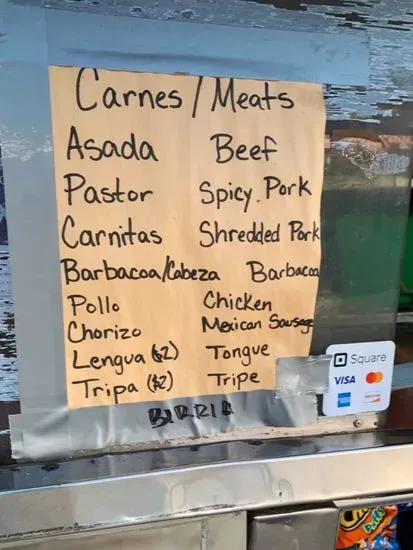 Carnes / Meats
Asada Beef
Pastor Spicy. Pork
Carnitas Shredded Pork
Barbacoa/Cabeza Barbacoa
Pollo Chicken
Chorizo Mexican Sausage
Lengua ($2) Tongue
Tripa ($2) Tripe
BIRRIA
Square
VISA